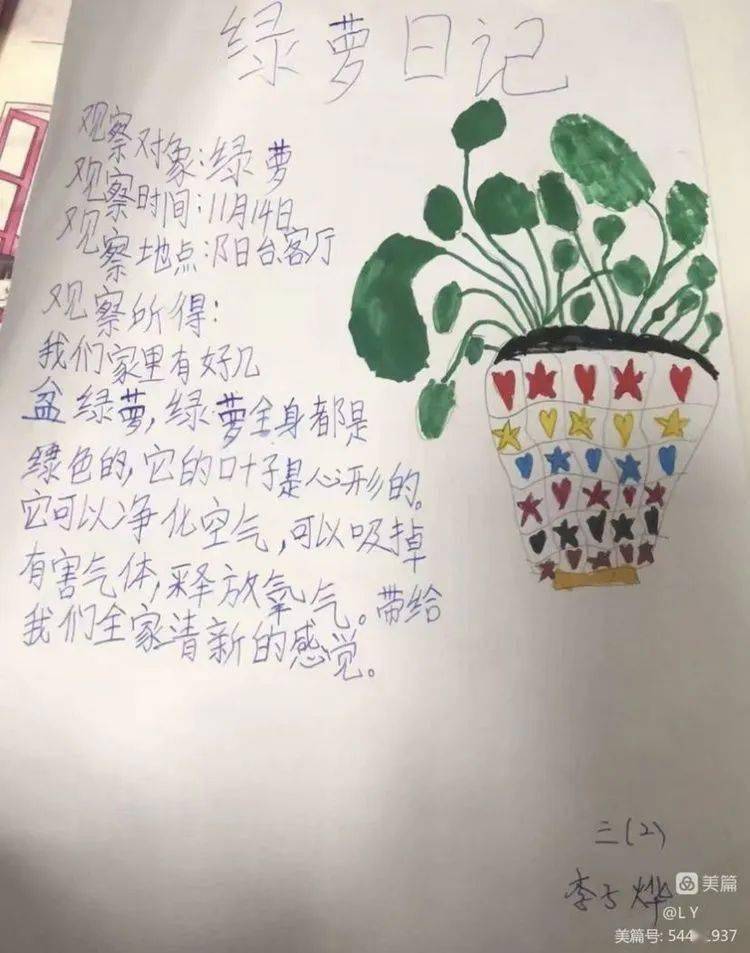 绿萝日记
观察对象:绿萝
观察时间:11月14日
观察地点:阳台客厅
观察所得:
我们家里有好几
盆绿萝,绿萝全身都是
绿色的,它的叶子是心形的。
它可以净化空气,可以吸掉
有害气体,释放氧气。带给
我们全家清新的感觉。
三(2)
李子烨
美篇
@L Y
美篇号: 544
937